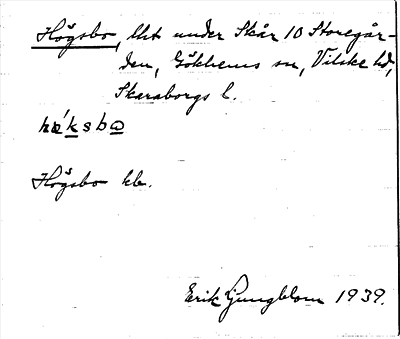 Högsbo, lht under Skår 10 Storegår-
den, Gökhems sn, Vilske hd,
Skaraborgs l.
hǿksbω
Högsbo kb.
Erik Ljungblom 1939.